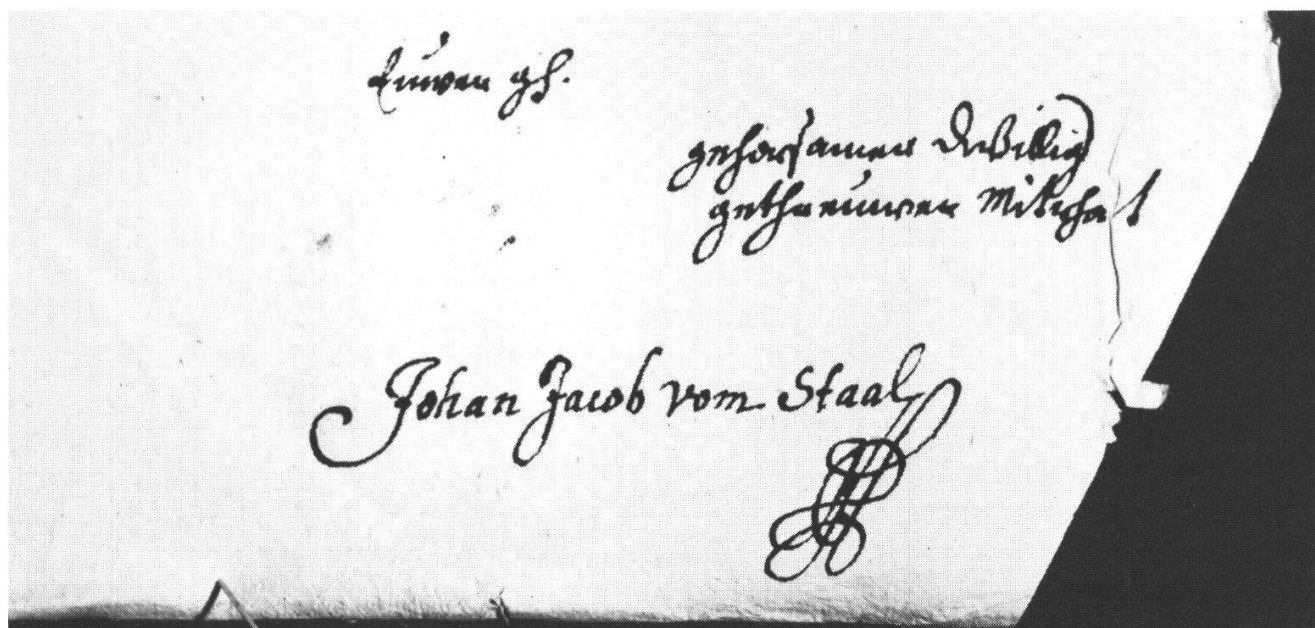 Euwer gh.
gehorsamer Dwillig
getreuwer Mitrhat
Johan Jacob vom Staal